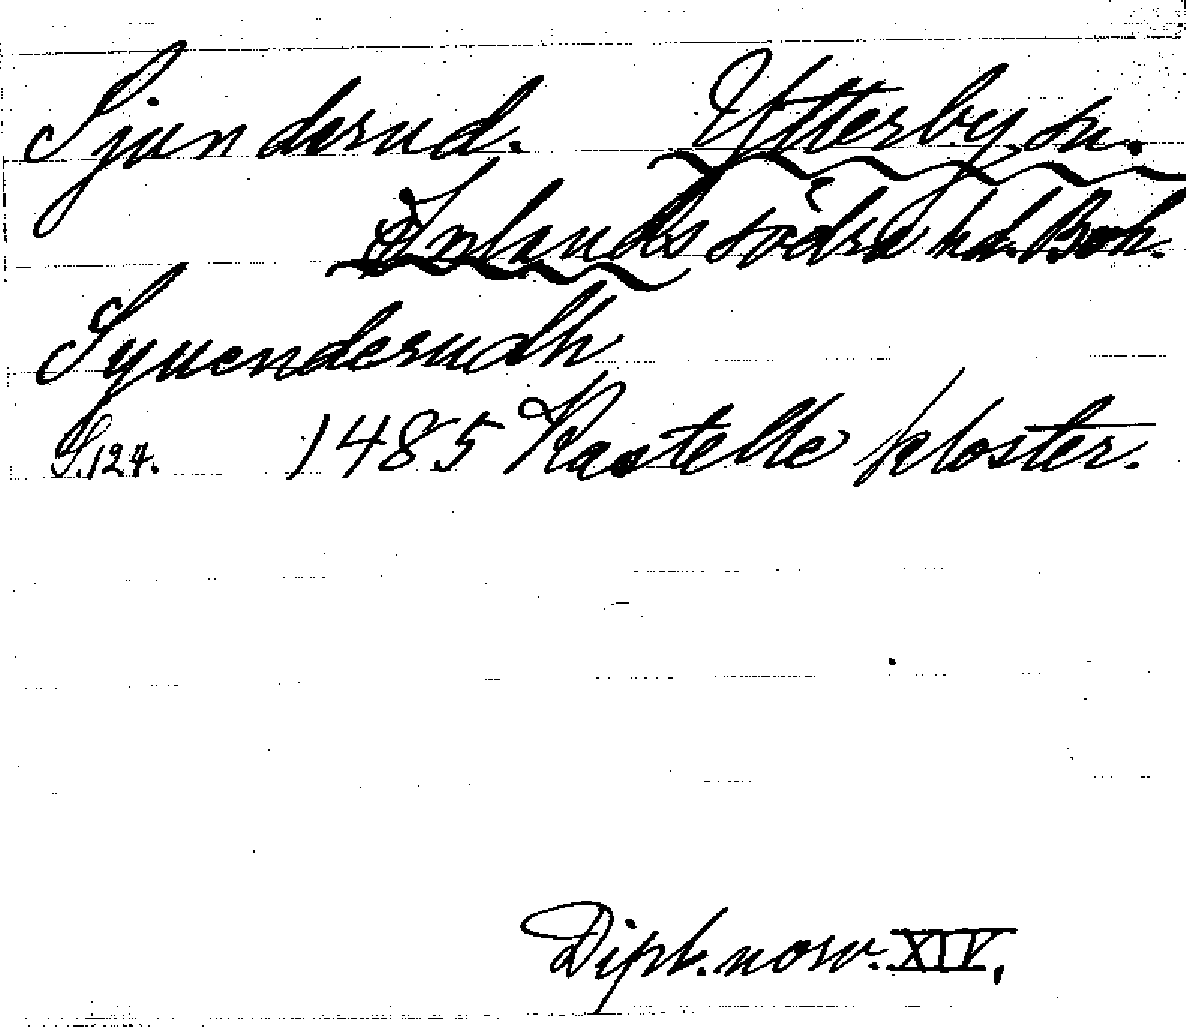 Sjunderud. Ytterby sn.
Inlands södra hd. Boh.
Syuenderudh
S. 127. 1485 Kastelle kloster.
Dipl. norv. XIV.